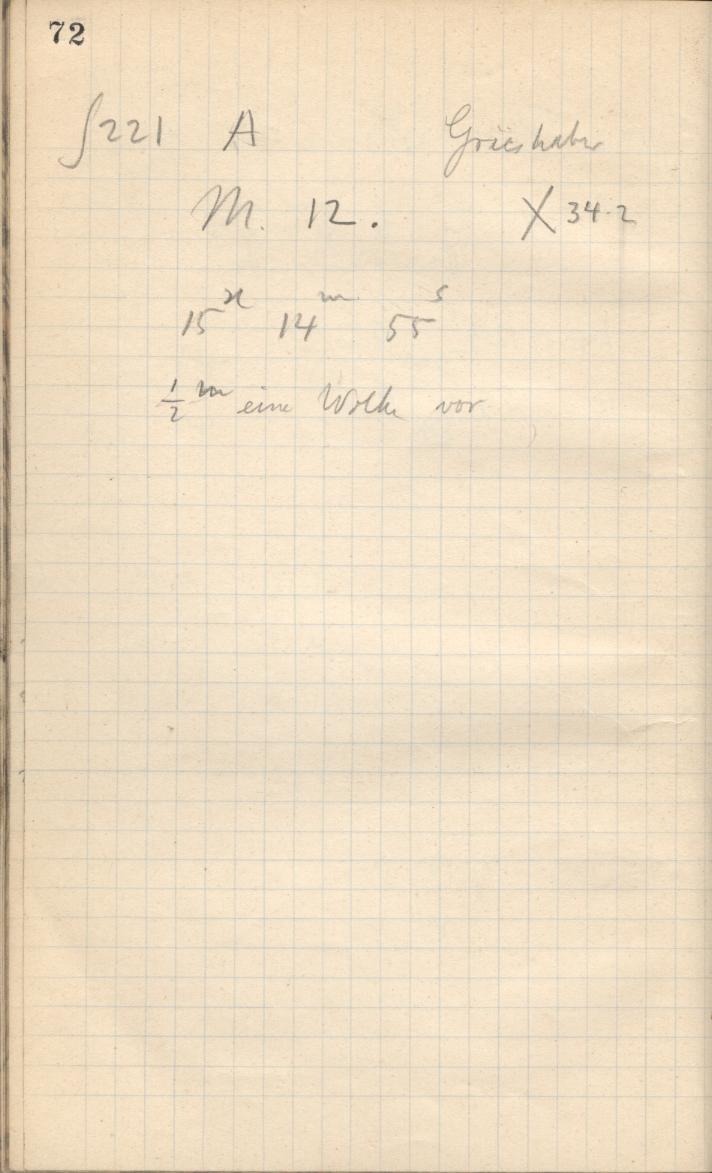 72
∫221 A Grieshaber
M. 12. X 34.2
15ʰ 14ᵐ 55ˢ
½ᵐ eine Wolke vor